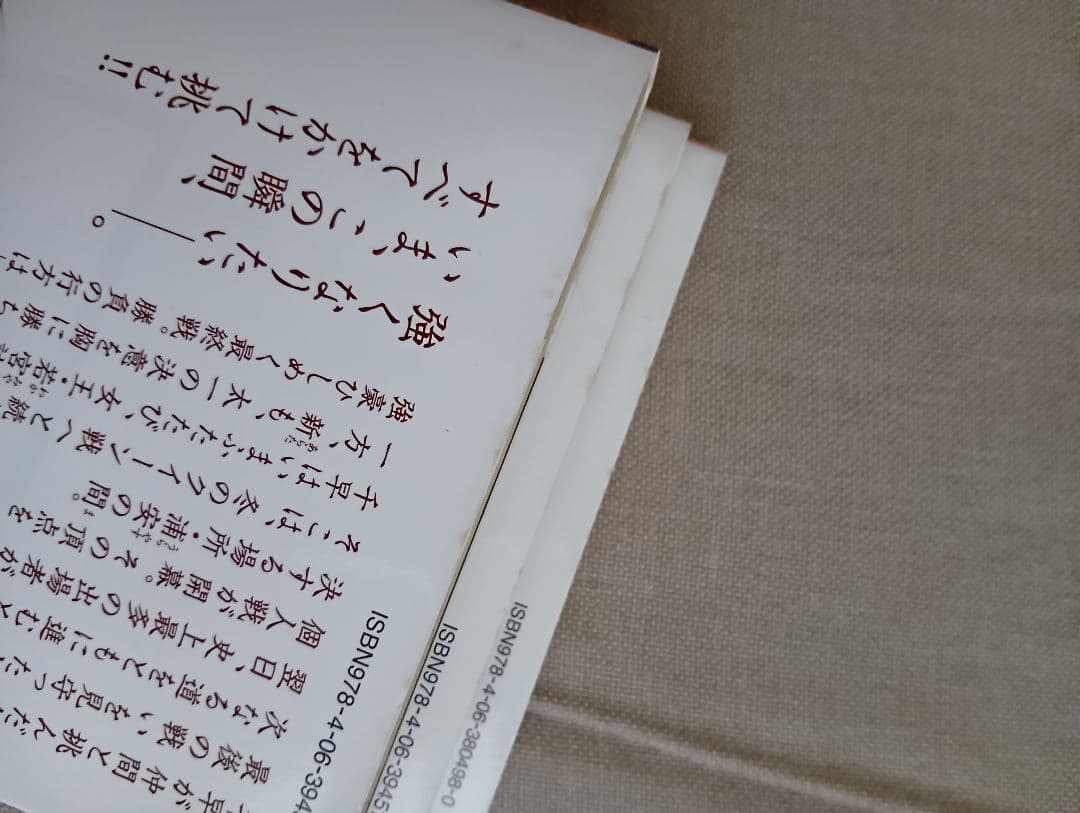 早が
仲間と挑んだ
最後の戦いを見守った
次なる道をともに進むと
翌日、史上最多の出場者が
個人戦が開幕。その頂点を
決する場所・浦安の間。
そこは、冬のクイーン戦へと続
千早はいまふたたび、女王・若宮
一方、新も、太一の決意を胸に勝ち
強豪ひしめく最終戦。勝負の行方は
強くなりたい――。
いま、この瞬間、
すべてをかけて挑む!!
ISBN978-4-06-394
ISBN978-4-06-3945
ISBN978-4-06-380498-0